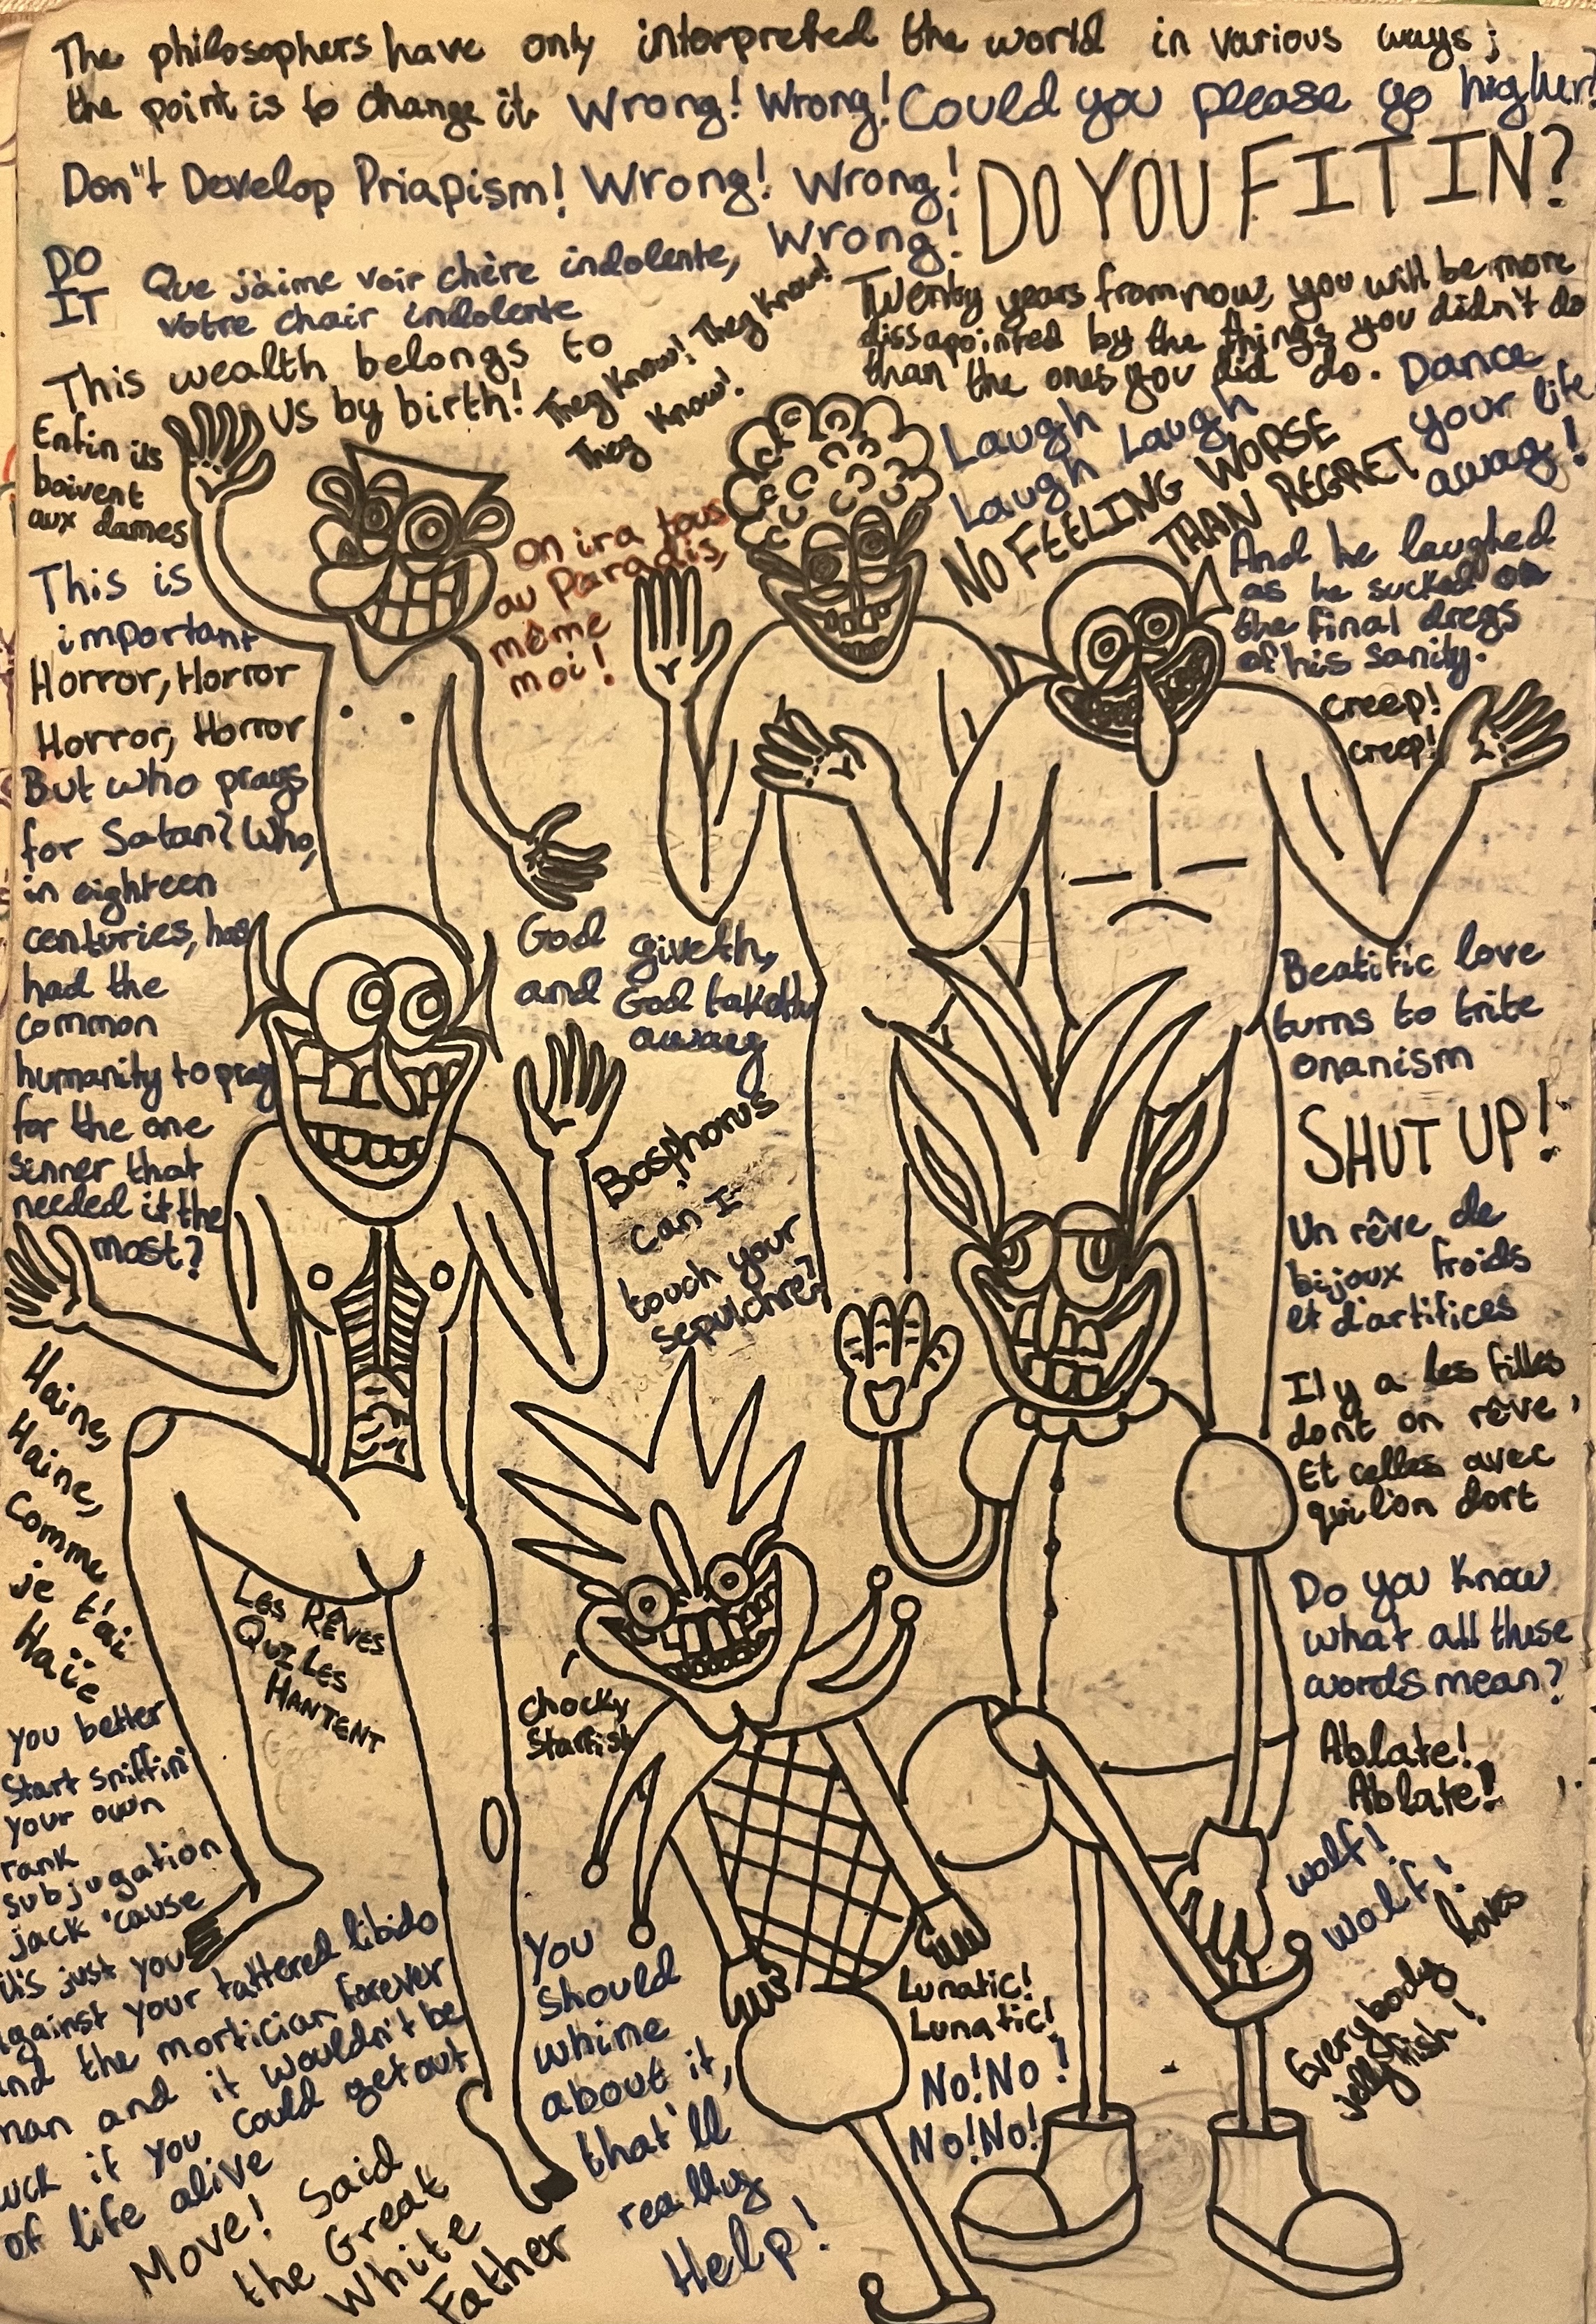 The philosophers have only interpreted the world in various ways;
the point is to change it Wrong! Wrong! Could you please go higher!
Don't Develop Priapism! Wrong! Wrong!
Wrong!
DO YOU FIT IN?
DO
IT
Que j'aime voir chère indolente,
votre chair indolente
This wealth belongs to
us by birth!
They Know! They Know!
They Know!
Twenty years from now, you will be more
dissapointed by the things you didn't do
than the ones you did do.
Dance
your life
away!
Laugh
Laugh Laugh
Laugh
NO FEELING WORSE
THAN REGRET
Enfin ils
boivent
aux dames
on ira tous
au Paradis,
même
moi!
And he laughed
as he sucked on
the final dregs
of his sanity.
creep!
creep!
This is
important
Horror, Horror
Horror, Horror
But who prays
for Satan? Who,
in eighteen
centuries, has
had the
common
humanity to pray
for the one
sinner that
needed it the
most?
God giveth,
and God taketh
away
Bosphorus
can I
touch your
sepulchre?
Beatific love
turns to trite
onanism
SHUT UP!
Un rêve de
bijoux froids
et d'artifices
Il y a les filles
dont on rêve,
Et celles avec
qui l'on dort
Do you know
what all these
words mean?
Ablate!
Ablate!
wolf!
wolf!
Everybody loves
jellyfish!
Haine,
Haine,
Comme
je t'ai
Haïe
LES RÊVES
QUI LES
HANTENT
Chocky
Starfish
You better
Start sniffin'
your own
rank
subjugation
jack 'cause
it's just you
against your tattered libido
and the mortician forever
man and it wouldn't be
luck if you could get out
of life alive
Move! Said
the Great
White
Father
You
should
whine
about it,
that'll
really
Help!
Lunatic!
Lunatic!
No! No!
No! No!